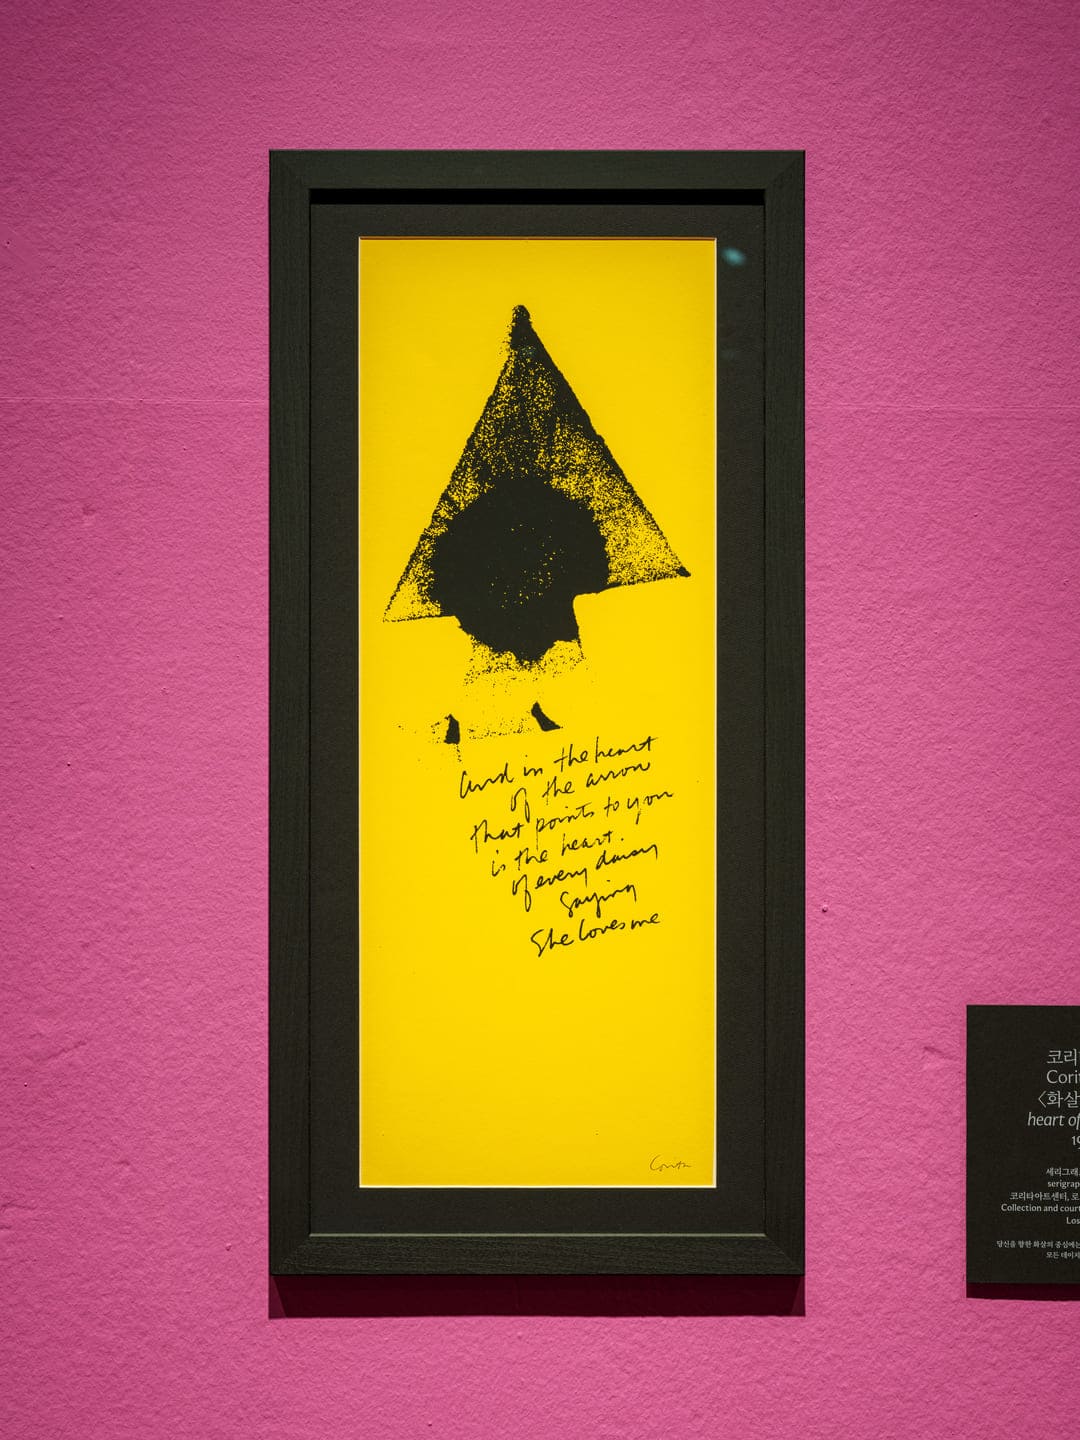 And in the heart
of the arrow
that points to you
is the heart.
of every daisy
Saying
She loves me
Corita
코리
Cori
〈화살
heart of
19
세리그래
serigrap
코리타아트센터, 로
Collection and court
Los
당신을 향한 화살의 중심에는
모든 데이지